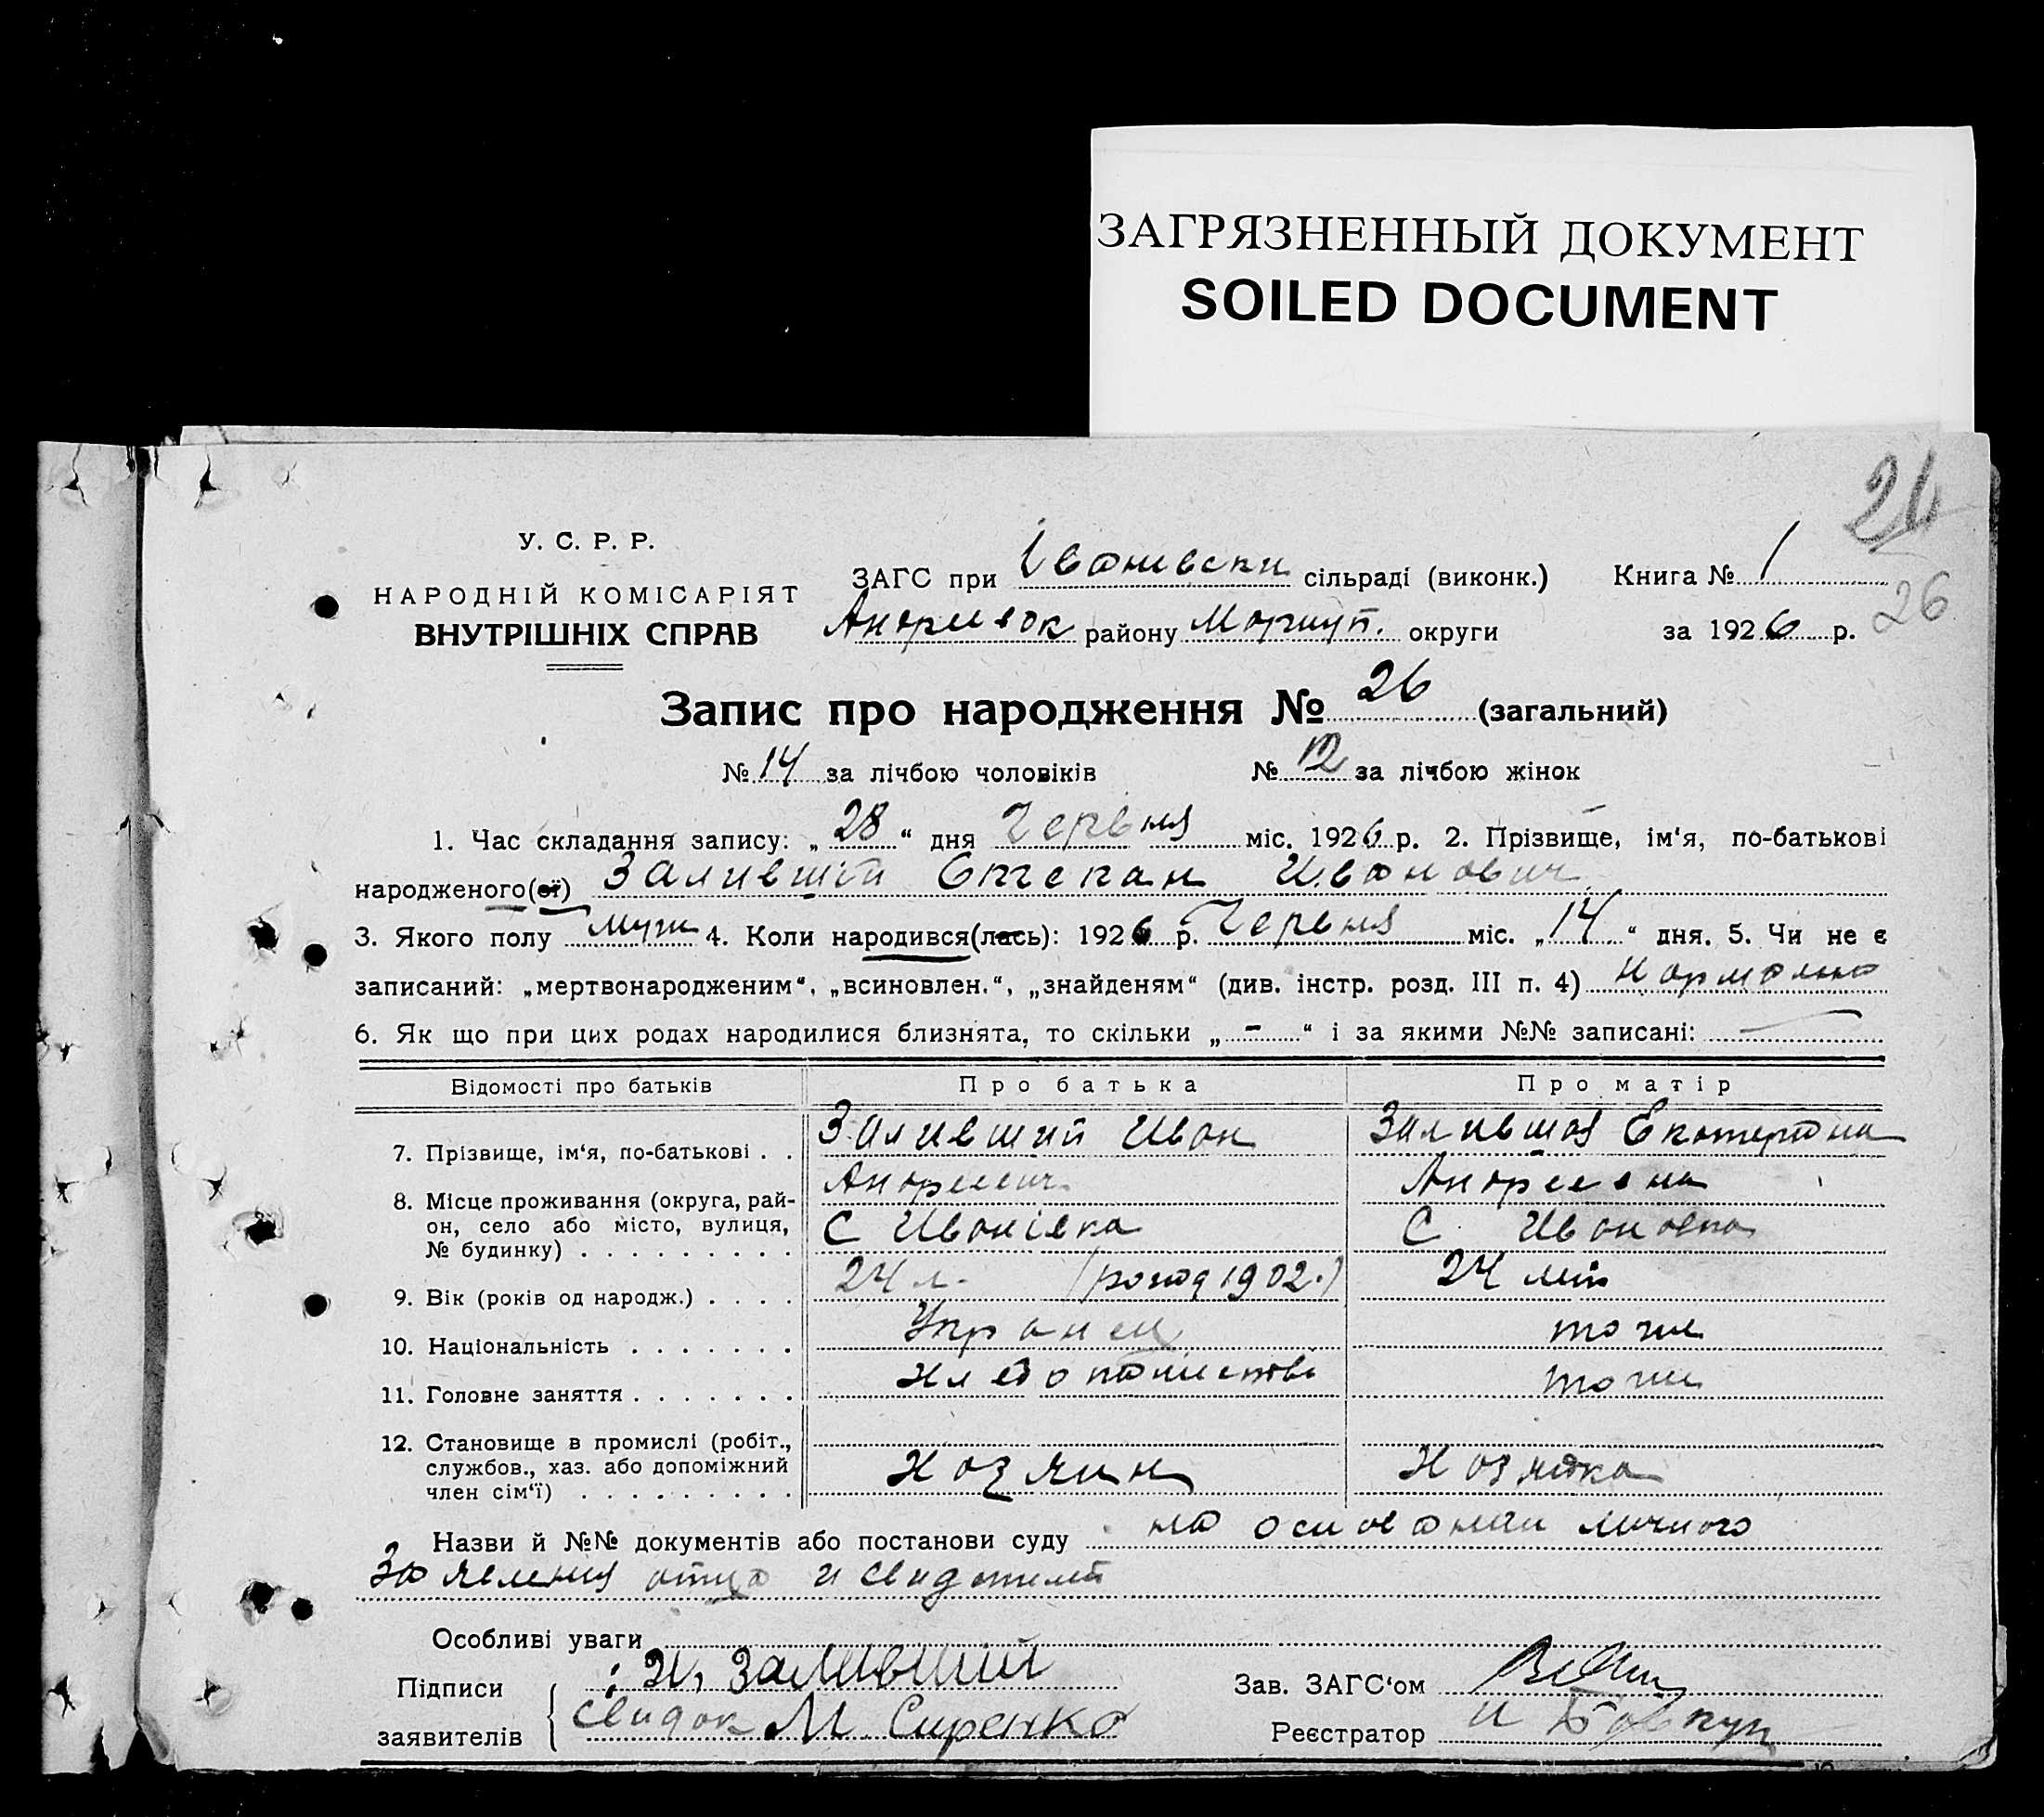 ЗАГРЯЗНЕННЫЙ ДОКУМЕНТ
SOILED DOCUMENT
24
26
У. С. Р. Р.
НАРОДНІЙ КОМІСАРІЯТ
ВНУТРІШНІХ СПРАВ
ЗАГС при Іванивски сільраді (виконк.) Книга № 1
Андриевок району Мариуп. округи за 1926 р.
Запис про народження № 26 (загальний)
№ 14 за лічбою чоловіків № 12 за лічбою жінок
1. Час складання запису: „28“ дня Червня міс. 1926 р. 2. Прізвище, ім‘я, по-батькові
народженого(ої) Заливший Степан Иванович
3. Якого полу муж 4. Коли народився(лась): 1926 р. Червня міс. „14“ дня. 5. Чи не є
записаний: „мертвонародженим“, „всиновлен.“, „знайденям“ (див. інстр. розд. III п. 4) нормально
6. Як що при цих родах народилися близнята, то скільки „-“ і за якими №№ записані:
Відомості про батьків Про батька Про матір
7. Прізвище, ім‘я, по-батькові . . Заливший Иван Андреевич Залившая Екатерина Андреевна
8. Місце проживання (округа, рай-
он, село або місто, вулиця,
№ будинку) . . . . . . . . . С Иванівка С Ивановка
9. Вік (років од народж.) . . . . 24 л. 1902.) 24 лет
10. Національність . . . . . . . Украинец тоже
11. Головне заняття . . . . . . . тоже
12. Становище в промислі (робіт.,
службов., хаз. або допоміжний
член сім‘ї) . . . . . . . . . Хозяин Хозяйка
Назви й №№ документів або постанови суду на основании личного
заявления отца и свидетелей
Особливі уваги
Підписи И. Заливший Зав. ЗАГС‘ом
заявителів Свидок М. Сиренко Реєстратор